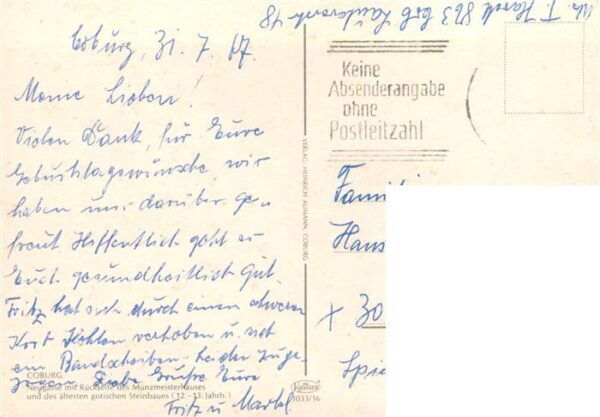 Coburg, 31. 7. 67.
Meine Lieben!
Vielen Dank, für Eure
Geburtstagswünsche, wir
haben uns darüber ge-
freut Hoffentlich geht es
Euch gesundheitlich gut.
Fritz hat sich durch einen schweren
Korb Kohlen verhoben u. sich
ein Bandscheiben-Leiden zuge-
zogen. Liebe Grüße Eure
Fritz u Martel.
COBURG
Neugasse mit Rückseite des Münzmeisterhauses
und des ältesten gotischen Steinbaues (12.-13. Jahrh.)
VERLAG HEINRICH AUMANN, COBURG
1033/16
863 Cob
48
Keine
Absenderangabe
ohne
Postleitzahl
Famili
Hans
x 30
Spie